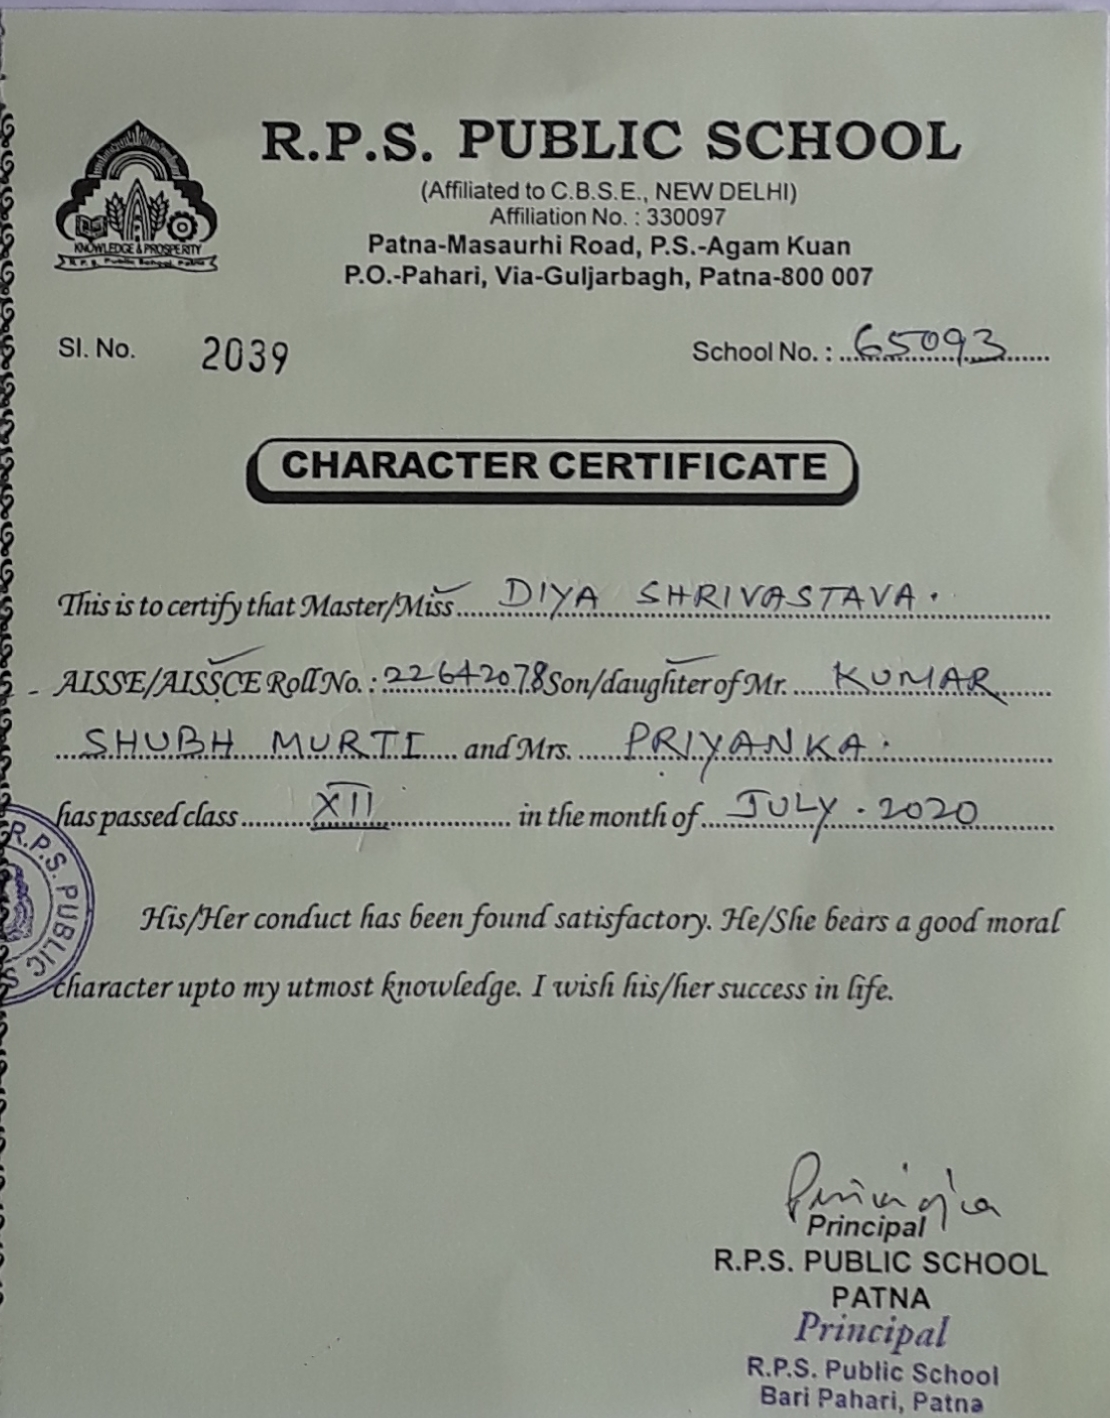 R.P.S. PUBLIC SCHOOL
(Affiliated to C.B.S.E., NEW DELHI)
Affiliation No. : 330097
Patna-Masaurhi Road, P.S.-Agam Kuan
P.O.-Pahari, Via-Guljarbagh, Patna-800 007
KNOWLEDGE & PROSPERITY
R.P.S. Public School, Patna
Sl. No. 2039 School No. : 65093
CHARACTER CERTIFICATE
This is to certify that Master/Miss DIYA SHRIVASTAVA.
AISSE/AISSCE Roll No. : 22642078 Son/daughter of Mr. KUMAR
SHUBH MURTI and Mrs. PRIYANKA.
has passed class XII in the month of JULY - 2020
R.P.S. PUBLIC S
His/Her conduct has been found satisfactory. He/She bears a good moral
character upto my utmost knowledge. I wish his/her success in life.
Principal
R.P.S. PUBLIC SCHOOL
PATNA
Principal
R.P.S. Public School
Bari Pahari, Patna